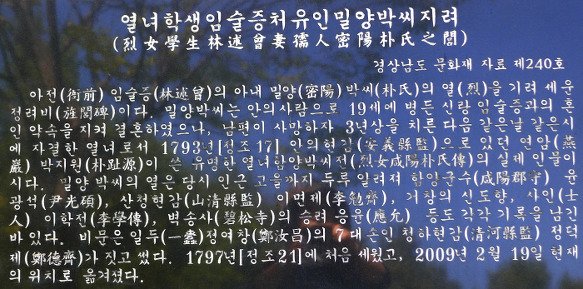 열녀학생임술증처유인밀양박씨지려
(烈女學生林述曾妻孺人密陽朴氏之閭)
경상남도 문화재 자료 제240호
아전(衙前) 임술증(林述曾)의 아내 밀양(密陽)박씨(朴氏)의 열(烈)을 기려 세운
정려비(旌閭碑)이다. 밀양박씨는 안의사람으로 19세에 병든 신랑 임술증과의 혼
인 약속을 지켜 결혼하였으나, 남편이 사망하자 3년상을 치른다음 같은날 같은시
에 자결한 열녀로서 1793년[정조 17] 안의현감(安義縣監)으로 있던 연암(燕
巖) 박지원(朴趾源)이 쓴 유명한 열녀함양박씨전(烈女咸陽朴氏傳)의 실제 인물이
시다. 밀양 박씨의 열은 당시 인근 고을까지 두루 알려져 함양군수(咸陽郡守) 윤
광석(尹光碩), 산청현감(山清縣監) 이면제(李勉齊), 거창의 신도향, 사인(士
人) 이학전(李學傳), 벽송사(碧松寺)의 승려 응윤(應允) 등도 각각 기록을 남긴
바 있다. 비문은 일두(一蠹)정여창(鄭汝昌)의 7대 손인 청하현감(清河縣監) 정덕
제(鄭德齊)가 짓고 썼다. 1797년[정조21]에 처음 세웠고, 2009년 2월 19일 현재
의 위치로 옮겨졌다.